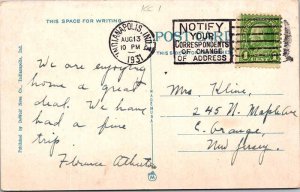 KC 1
THIS SPACE FOR WRITING
POSTCARD
INDIANAPOLIS, IND.
AUG 13
10 PM
1931
NOTIFY
YOUR
CORRESPONDENTS
OF CHANGE
OF ADDRESS
Published by DeWolf News Co., Indianapolis, Ind.
We are enjoying
home a great
deal. We have
had a fine
trip.
Florence
Mrs. Kline,
245 N. Maple Ave
E. Orange,
New Jersey.